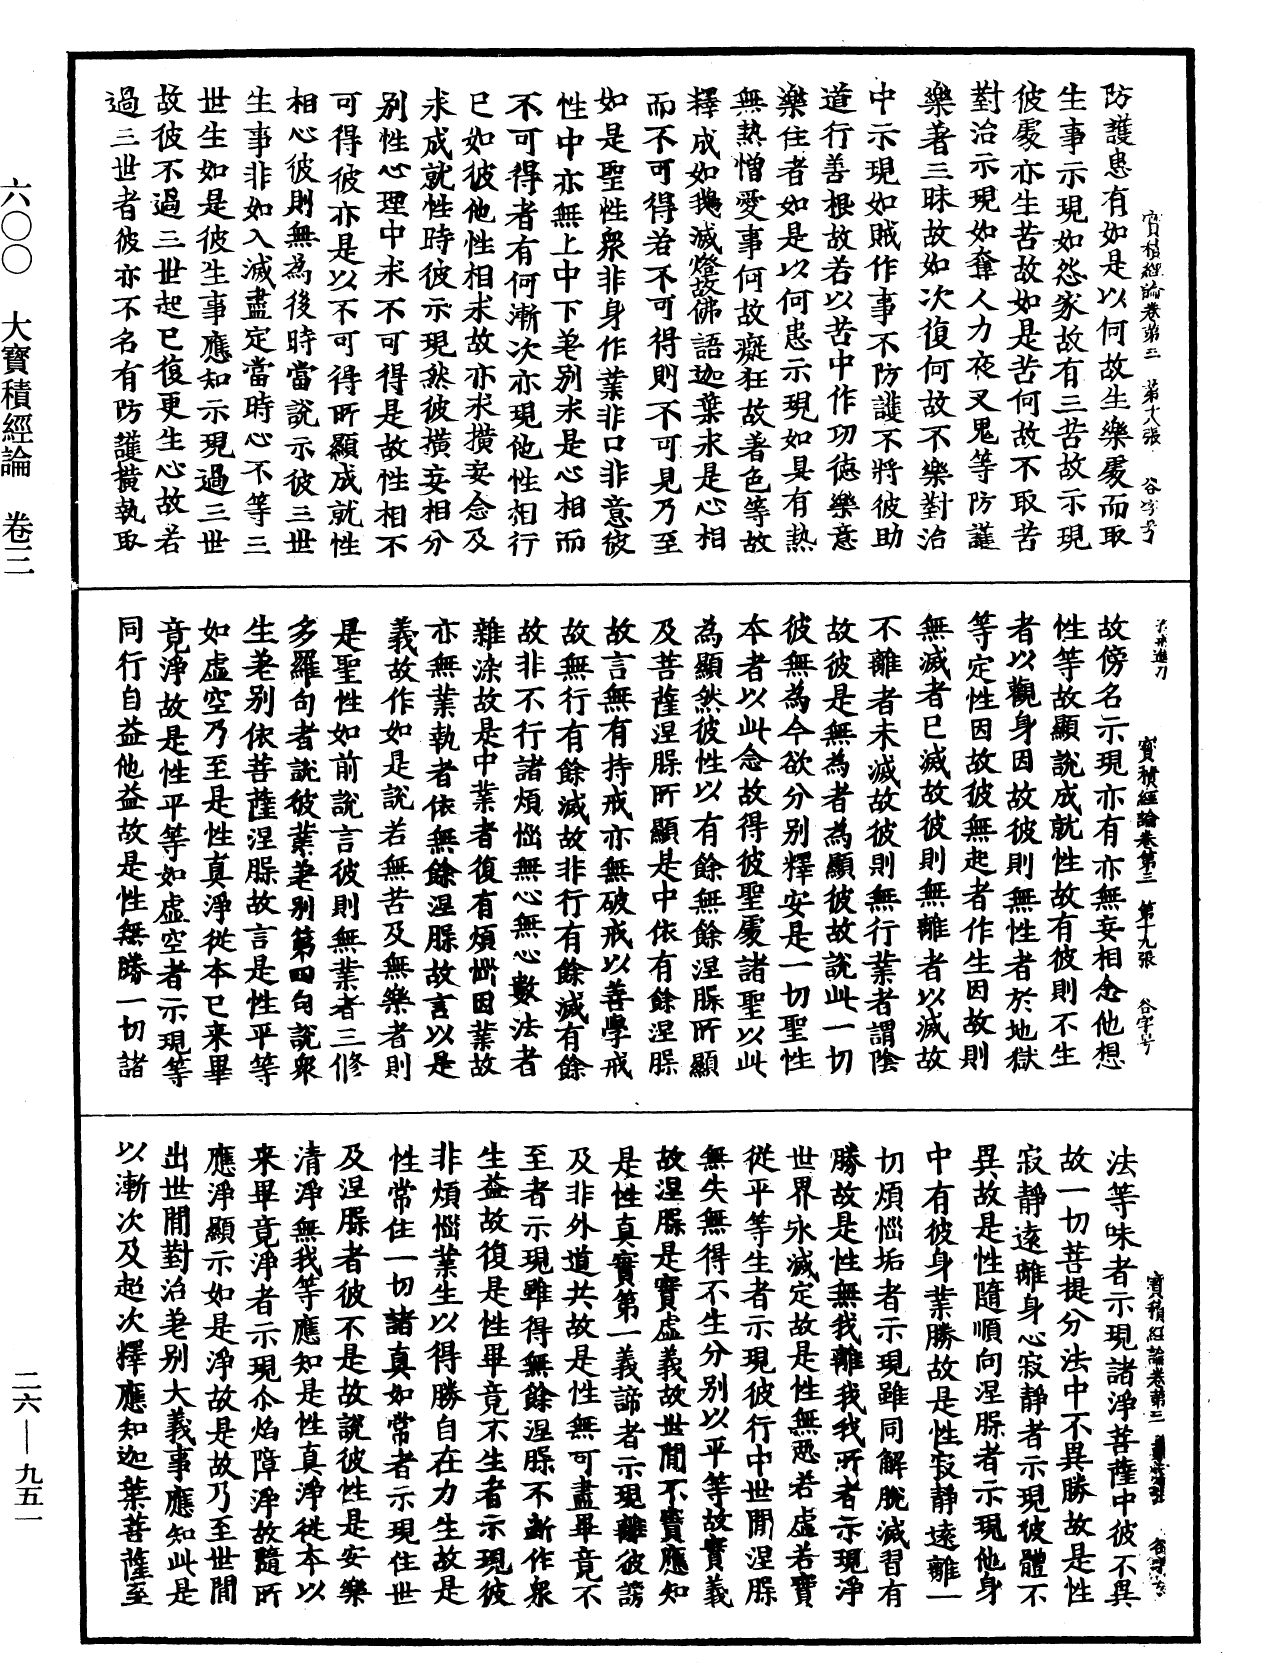 六〇〇 大寶積經論 卷三
二六—九五一
寶積經論卷第三 第大張 谷字号
防護患有如是以何故生樂處而取
生事示現如怨家故有三苦故示現
彼處亦生苦故如是苦何故不取苦
對治示現如奪人力夜叉鬼等防護
樂著三昧故如次復何故不樂對治
中示現如賊作事不防護不將彼助
道行善根故若以苦中作功德樂意
樂住者如是以何患示現如具有熱
無熱憎愛事何故癡狂故著色等故
釋成如我滅燈故佛語迦葉求是心相
而不可得若不可得則不可見乃至
如是聖性衆非身作業非口非意彼
性中亦無上中下差別求是心相而
不可得者有何漸次亦現他性相行
已如彼他性相求故亦求撗妄念及
求成就性時彼示現然彼撗妄相分
別性心理中求不可得是故性相不
可得彼亦是以不可得所顯成就性
相心彼則無為後時當說示彼三世
生事非如入滅盡定當時心不等三
世生如是彼生事應知示現過三世
故彼不過三世起已復更生心故若
過三世者彼亦不名有防護撗執取
寶積經論卷第三 第十九張 谷字号
故傍名示現亦有亦無妄相念他想
性等故顯說成就性故有彼則不生
者以觀身因故彼則無性者於地獄
等定性因故彼無起者作生因故則
無滅者已滅故彼則無離者以滅故
不離者未滅故彼則無行業者謂陰
故彼是無為者為顯彼故說此一切
彼無為今欲分別釋安是一切聖性
本者以此念故得彼聖處諸聖以此
為顯然彼性以有餘無餘涅槃所顯
及菩薩涅槃所顯是中依有餘涅槃
故言無有持戒亦無破戒以善學戒
故無行有餘滅故非行有餘滅有餘
故非不行諸煩惱無心無心數法者
雜染故是中業者復有煩惱因業故
亦無業執者依無餘涅槃故言以是
義故作如是說若無苦及無樂者則
是聖性如前說言彼則無業者三修
多羅句者說彼業差別第四句說衆
生差別依菩薩涅槃故言是性平等
如虛空乃至是性真淨從本已来畢
竟淨故是性平等如虛空者示現等
同行自益他益故是性無勝一切諸
寶積經論卷第三
法等味者示現諸淨菩薩中彼不異
故一切菩提分法中不異勝故是性
寂靜遠離身心寂靜者示現彼體不
異故是性隨順向涅槃者示現他身
中有彼身業勝故是性寂靜遠離一
切煩惱垢者示現雖同解脫滅習有
勝故是性無我離我我所者示現淨
世界永滅定故是性無惡若虛若實
從平等生者示現彼行中世間涅槃
無失無得不生分別以平等故實義
故涅槃是實虛義故世間不實應知
是性真實第一義諦者示現離彼謗
及非外道共故是性無可盡畢竟不
至者示現雖得無餘涅槃不斷作衆
生益故復是性畢竟不生者示現彼
非煩惱業生以得勝自在力生故是
性常住一切諸真如常者示現住世
及涅槃者彼不是故說彼性是安樂
清淨無我等應知是性真淨從本以
来畢竟淨者示現尒焰障淨故隨所
應淨顯示如是淨故是故乃至世間
出世間對治差別大義事應知此是
以漸次及起次釋應知迦葉菩薩至